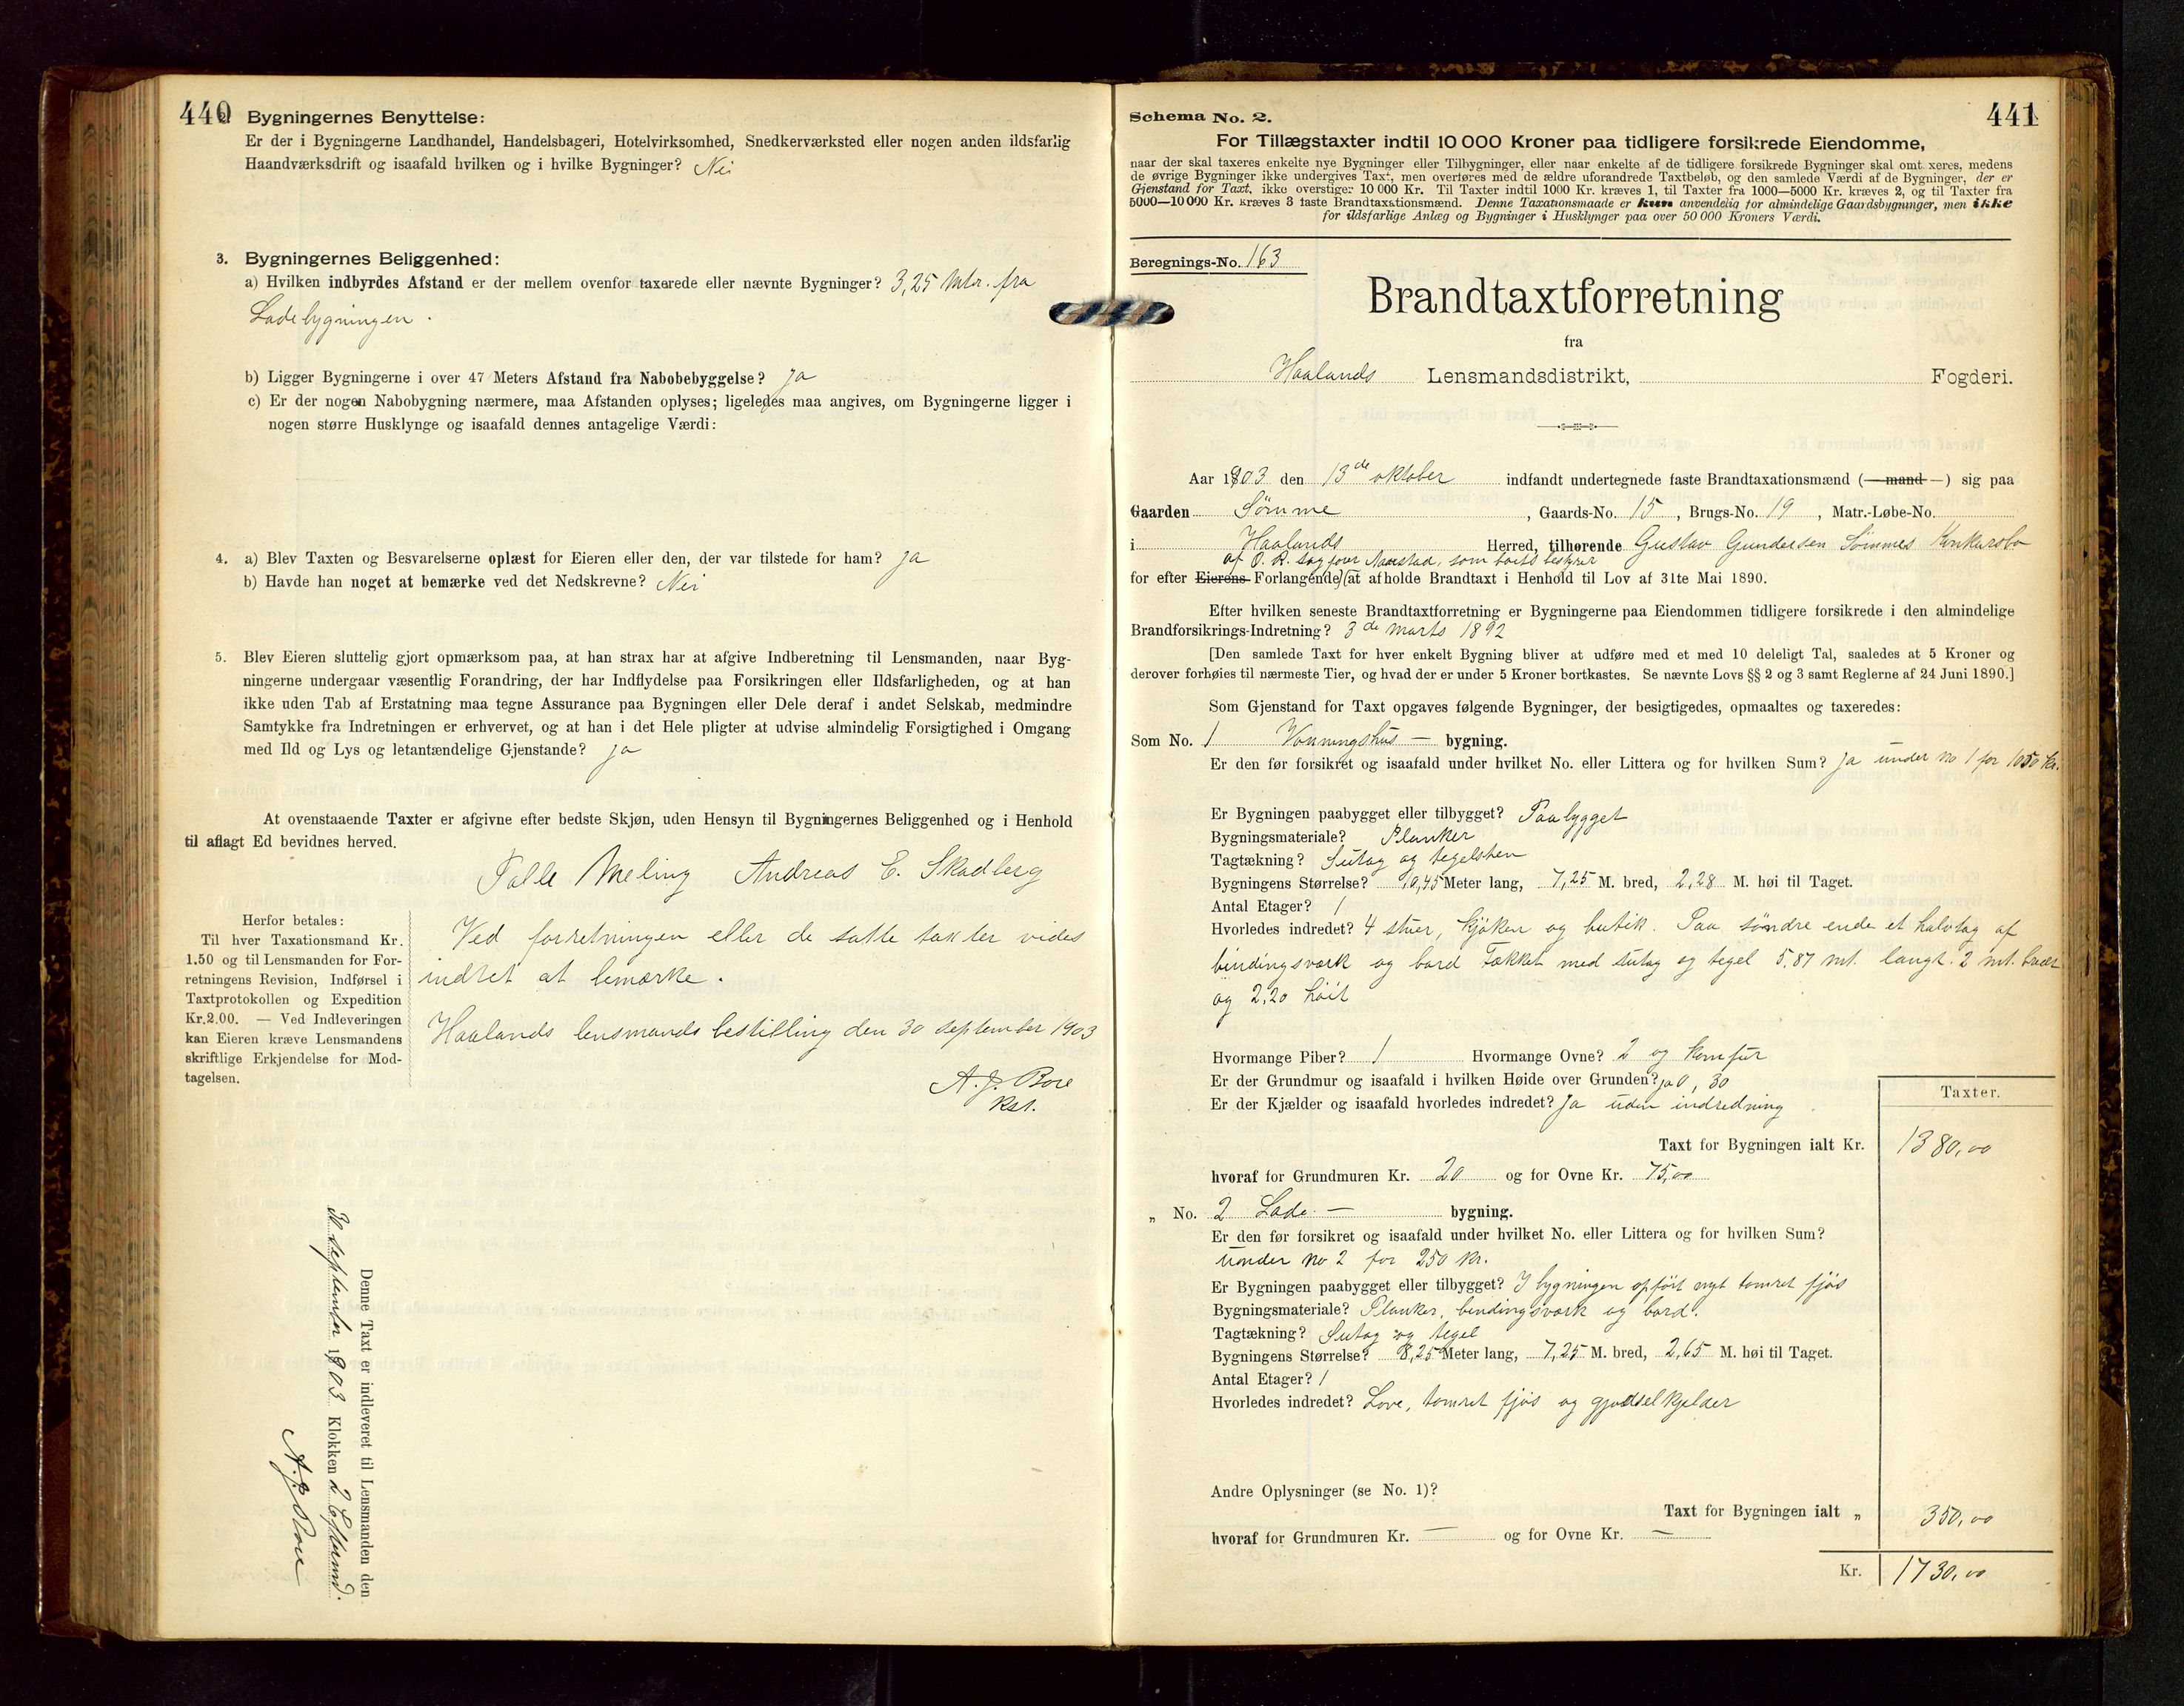 440
2. Bygningernes Benyttelse:
Er der i Bygningerne Landhandel, Handelsbageri, Hotelvirksomhed, Snedkerværksted eller nogen anden ildsfarlig
Haandværksdrift og isaafald hvilken og i hvilke Bygninger? Nei
3. Bygningernes Beliggenhed:
a) Hvilken indbyrdes Afstand er der mellem ovenfor taxerede eller nævnte Bygninger? 3,25 Mtr. fra
Ladebygningen.
b) Ligger Bygningerne i over 47 Meters Afstand fra Nabobebyggelse? Ja
c) Er der nogen Nabobygning nærmere, maa Afstanden oplyses; ligeledes maa angives, om Bygningerne ligger i
nogen større Husklynge og isaafald dennes antagelige Værdi:
4. a) Blev Taxten og Besvarelserne oplæst for Eieren eller den, der var tilstede for ham? Ja
b) Havde han noget at bemærke ved det Nedskrevne? Nei
5. Blev Eieren sluttelig gjort opmærksom paa, at han strax har at afgive Indberetning til Lensmanden, naar Byg-
ningerne undergaar væsentlig Forandring, der har Indflydelse paa Forsikringen eller Ildsfarligheden, og at han
ikke uden Tab af Erstatning maa tegne Assurance paa Bygningen eller Dele deraf i andet Selskab, medmindre
Samtykke fra Indretningen er erhvervet, og at han i det Hele pligter at udvise almindelig Forsigtighed i Omgang
med Ild og Lys og letantændelige Gjenstande? ja
At ovenstaaende Taxter er afgivne efter bedste Skjøn, uden Hensyn til Bygningernes Beliggenhed og i Henhold
til aflagt Ed bevidnes herved.
Palle Meling Andreas E. Skadberg
Herfor betales:
Til hver Taxationsmand Kr.
1.50 og til Lensmanden for For-
retningens Revision, Indførsel i
Taxtprotokollen og Expedition
Kr.2.00. — Ved Indleveringen
kan Eieren kræve Lensmandens
skriftlige Erkjendelse for Mod-
tagelsen.
Ved forretningen eller de satte takter vides
indtet at bemærke.
Haalands lensmands bestilling den 30 september 1903
A. J. Bore
Kst.
Denne Taxt er indleveret til Lensmanden den
30 september 1903 Klokken 2 Efterm.
A. J. Bore
441
Schema No. 2.
For Tillægstaxter indtil 10 000 Kroner paa tidligere forsikrede Eiendomme,
naar der skal taxeres enkelte nye Bygninger eller Tilbygninger, eller naar enkelte af de tidligere forsikrede Bygninger skal omt xeres, medens
de øvrige Bygninger ikke undergives Taxt, men overføres med de ældre uforandrede Taxtbeløb, og den samlede Værdi af de Bygninger, der er
Gjenstand for Taxt, ikke overstiger 10 000 Kr. Til Taxter indtil 1000 Kr. kræves 1, til Taxter fra 1000—5000 Kr. kræves 2, og til Taxter fra
5000—10 000 Kr. kræves 3 faste Brandtaxationsmænd. Denne Taxationsmaade er kun anvendelig for almindelige Gaardsbygninger, men ikke
for ildsfarlige Anlæg og Bygninger i Husklynger paa over 50 000 Kroners Værdi.
Beregnings-No. 163
Brandtaxtforretning
fra
Haalands Lensmandsdistrikt, Fogderi.
Aar 1903 den 13de oktober indfandt undertegnede faste Brandtaxationsmænd (—mand—) sig paa
Gaarden Sømme, Gaards-No. 15, Brugs-No. 19, Matr.-Løbe-No.
i Haalands Herred, tilhørende Gustav Gundersen Sømmes Konkursbo
af O. R. sagfører Aarstad, som boets bestyrer
for efter Eierens Forlangende at afholde Brandtaxt i Henhold til Lov af 31te Mai 1890.
Efter hvilken seneste Brandtaxtforretning er Bygningerne paa Eiendommen tidligere forsikrede i den almindelige
Brandforsikrings-Indretning? 3de marts 1892
[Den samlede Taxt for hver enkelt Bygning bliver at udføre med et med 10 deleligt Tal, saaledes at 5 Kroner og
derover forhøies til nærmeste Tier, og hvad der er under 5 Kroner bortkastes. Se nævnte Lovs §§ 2 og 3 samt Reglerne af 24 Juni 1890.]
Som Gjenstand for Taxt opgaves følgende Bygninger, der besigtigedes, opmaaltes og taxeredes:
Som No. 1 Vonningshus — bygning.
Er den før forsikret og isaafald under hvilket No. eller Littera og for hvilken Sum? Ja under No 1 for 1050 kr.
Er Bygningen paabygget eller tilbygget? Paabygget
Bygningsmateriale? Planker
Tagtækning? Sutag og tegelsten
Bygningens Størrelse? 10,45 Meter lang, 7,25 M. bred, 2,28 M. høi til Taget.
Antal Etager? 1
Hvorledes indredet? 4 stuer, kjøken og butik. Paa søndre ende et halvtag af
bindingsværk og bord Tækket med sutag og tegel 5,87 mt. langt. 2 mt. bredt
og 2,20 høit
Hvormange Piber? 1 Hvormange Ovne? 2 og komfur
Er der Grundmur og isaafald i hvilken Høide over Grunden? ja 0,30
Er der Kjælder og isaafald hvorledes indredet? Ja uden indredning
Taxter.
Taxt for Bygningen ialt Kr. 1380,00
hvoraf for Grundmuren Kr. 20 og for Ovne Kr. 75,00
„ No. 2 Lade — bygning.
Er den før forsikret og isaafald under hvilket No. eller Littera og for hvilken Sum?
under No 2 for 250 kr.
Er Bygningen paabygget eller tilbygget? I bygningen opført nyt tømret fjøs
Bygningsmateriale? Planker, bindingsværk og bord.
Tagtækning? Sutag og tegel
Bygningens Størrelse? 8,25 Meter lang, 7,25 M. bred, 2,65 M. høi til Taget.
Antal Etager? 1
Hvorledes indredet? Love, tømret fjøs og gjødselkjelder
Andre Oplysninger (se No. 1)?
Taxt for Bygningen ialt „ 350,00
hvoraf for Grundmuren Kr. — og for Ovne Kr. —
Kr. 1730,00